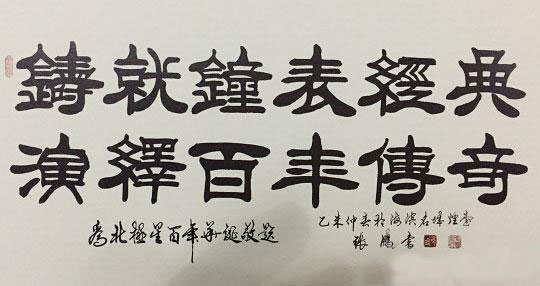 鑄就鐘表經典
演繹百年傳奇
為北極星百年華誕敬題
乙未仲春於海濱名埠煙臺
張鵬書